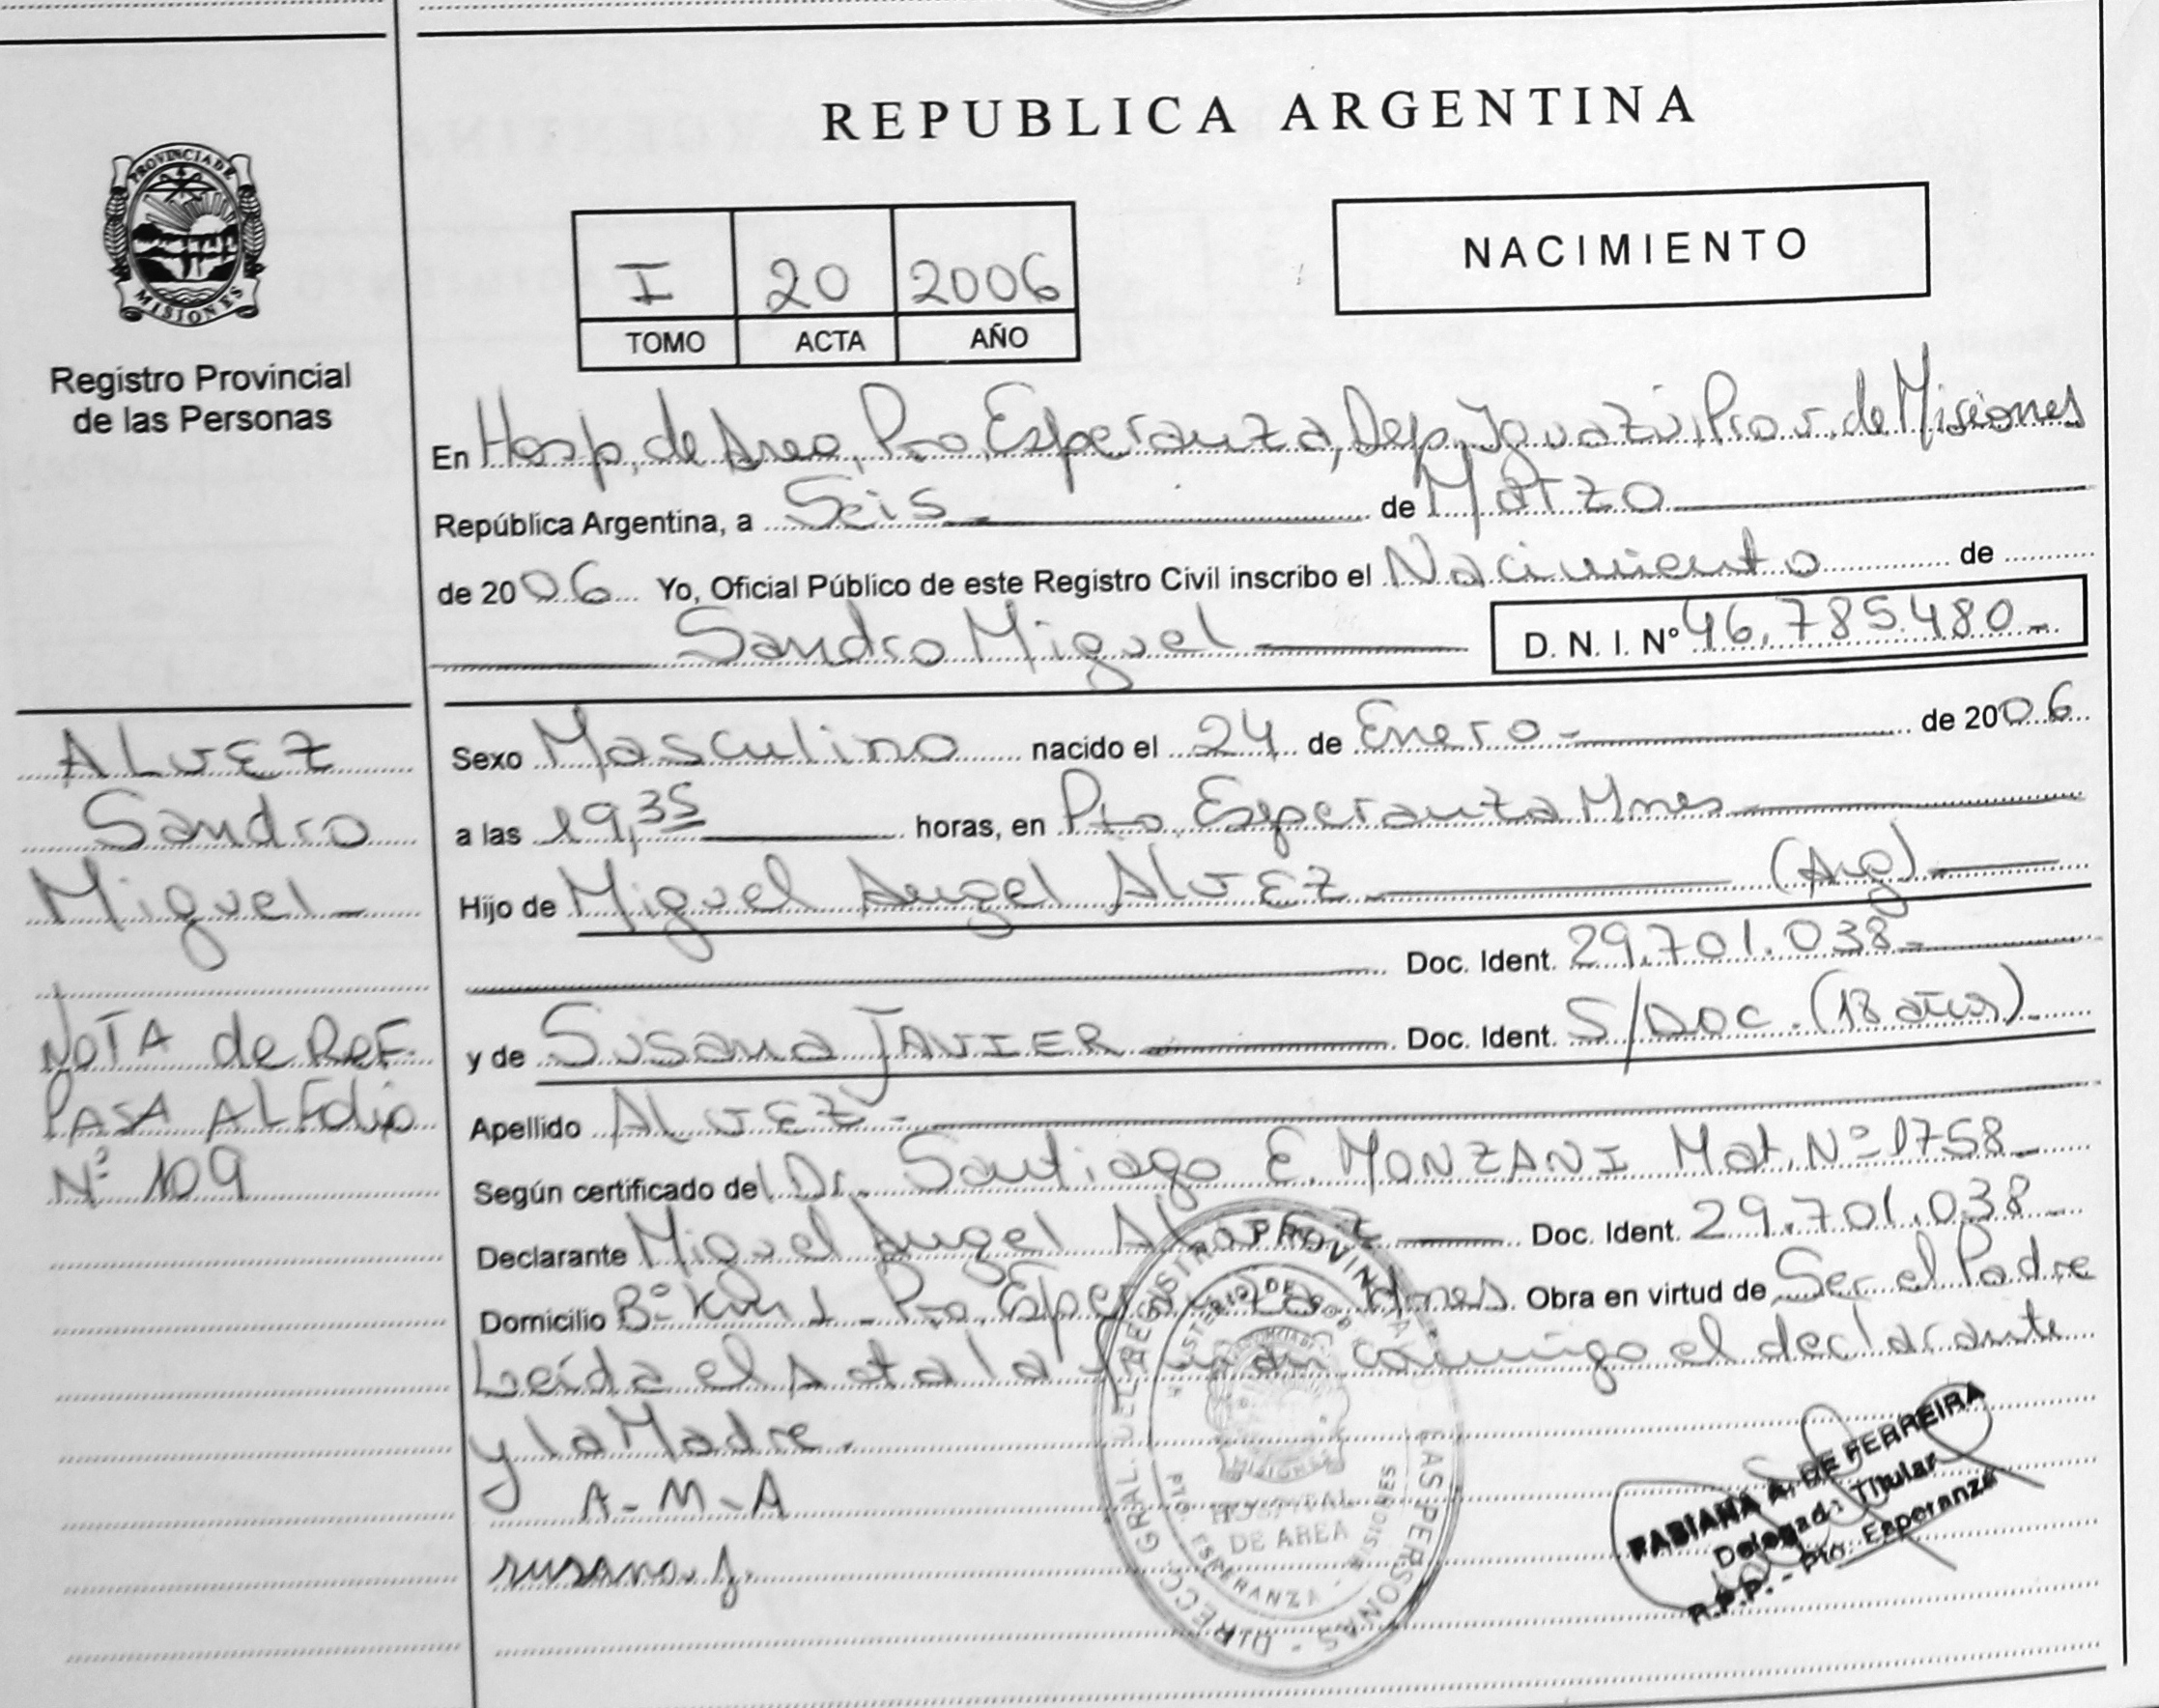 REPUBLICA ARGENTINA
PROVINCIA DE
MISIONES
Registro Provincial
de las Personas
I 20 2006
TOMO ACTA AÑO
NACIMIENTO
En Hosp. de Area, Pto Esperanza, Dep. Iguazú, Prov. de Misiones
República Argentina, a Seis de Marzo
de 2006 Yo, Oficial Público de este Registro Civil inscribo el Nacimiento de
Sandro Miguel D. N. I. Nº 46.785.480-
ALVEZ
Sandro
Miguel-
NOTA de REF.
PASA AL Folio
Nº 109
Sexo Masculino nacido el 24 de Enero- de 2006
a las 19,35 horas, en Pto. Esperanza Mnes
Hijo de Miguel Angel ALVEZ (Arg)
Doc. Ident. 29.701.038-
y de Susana JAVIER Doc. Ident. S/Doc. (18 años)
Apellido ALVEZ-
Según certificado del Dr. Santiago E. MONZANI Mat. Nº 1758-
Declarante Miguel Angel Alvez Doc. Ident. 29.701.038-
Domicilio Bº Km 1 - Pto. Esperanza Mnes Obra en virtud de Ser el Padre
Leída el Acta la firman conmigo el declarante
y la Madre.
A-M-A
susana J.
DIRECC. GRAL. DEL REGISTRO PROVINCIAL DE LAS PERSONAS
HOSPITAL
DE AREA
PTO. ESPERANZA - MISIONES
FABIANA A. DE FERREIRA
Delegada Titular
R.P.P. - Pto. Esperanza